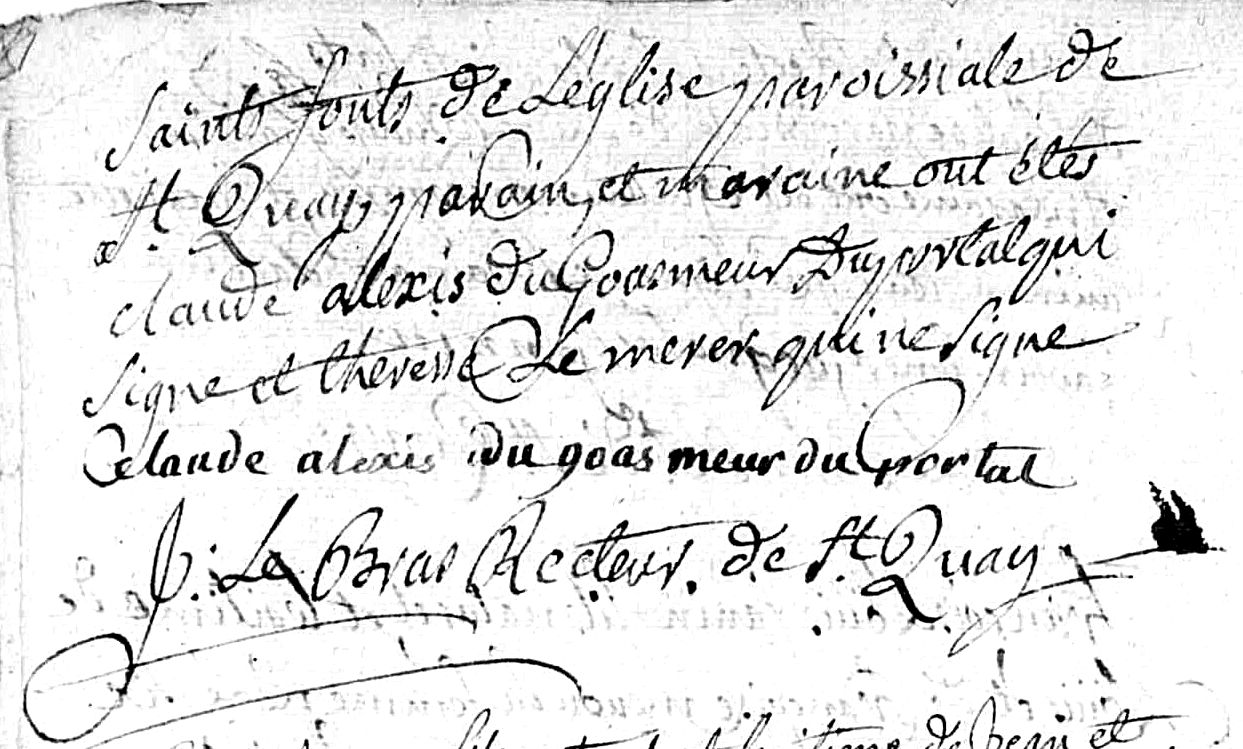 saints fonts de L'église paroissiale de
St. Quay, parain, et maraine ont étés
claude alexis du Goasmeur Duportal qui
signe et theresse Le merer qui ne signe
Claude alexis du goasmeur du Portal
J. Le Bras Recteur. de St. Quay
légitime de jean et